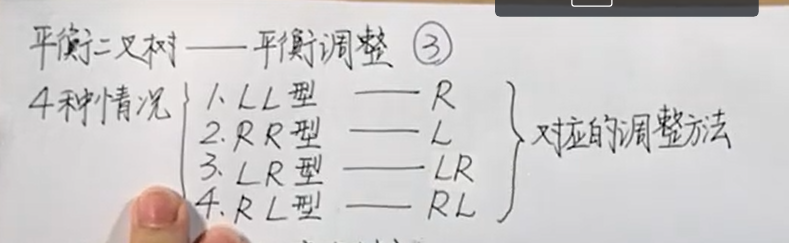 平衡二叉树——平衡调整 ③
4种情况 1. LL型 —— R
2. RR型 —— L
3. LR型 —— LR
4. RL型 —— RL
对应的调整方法